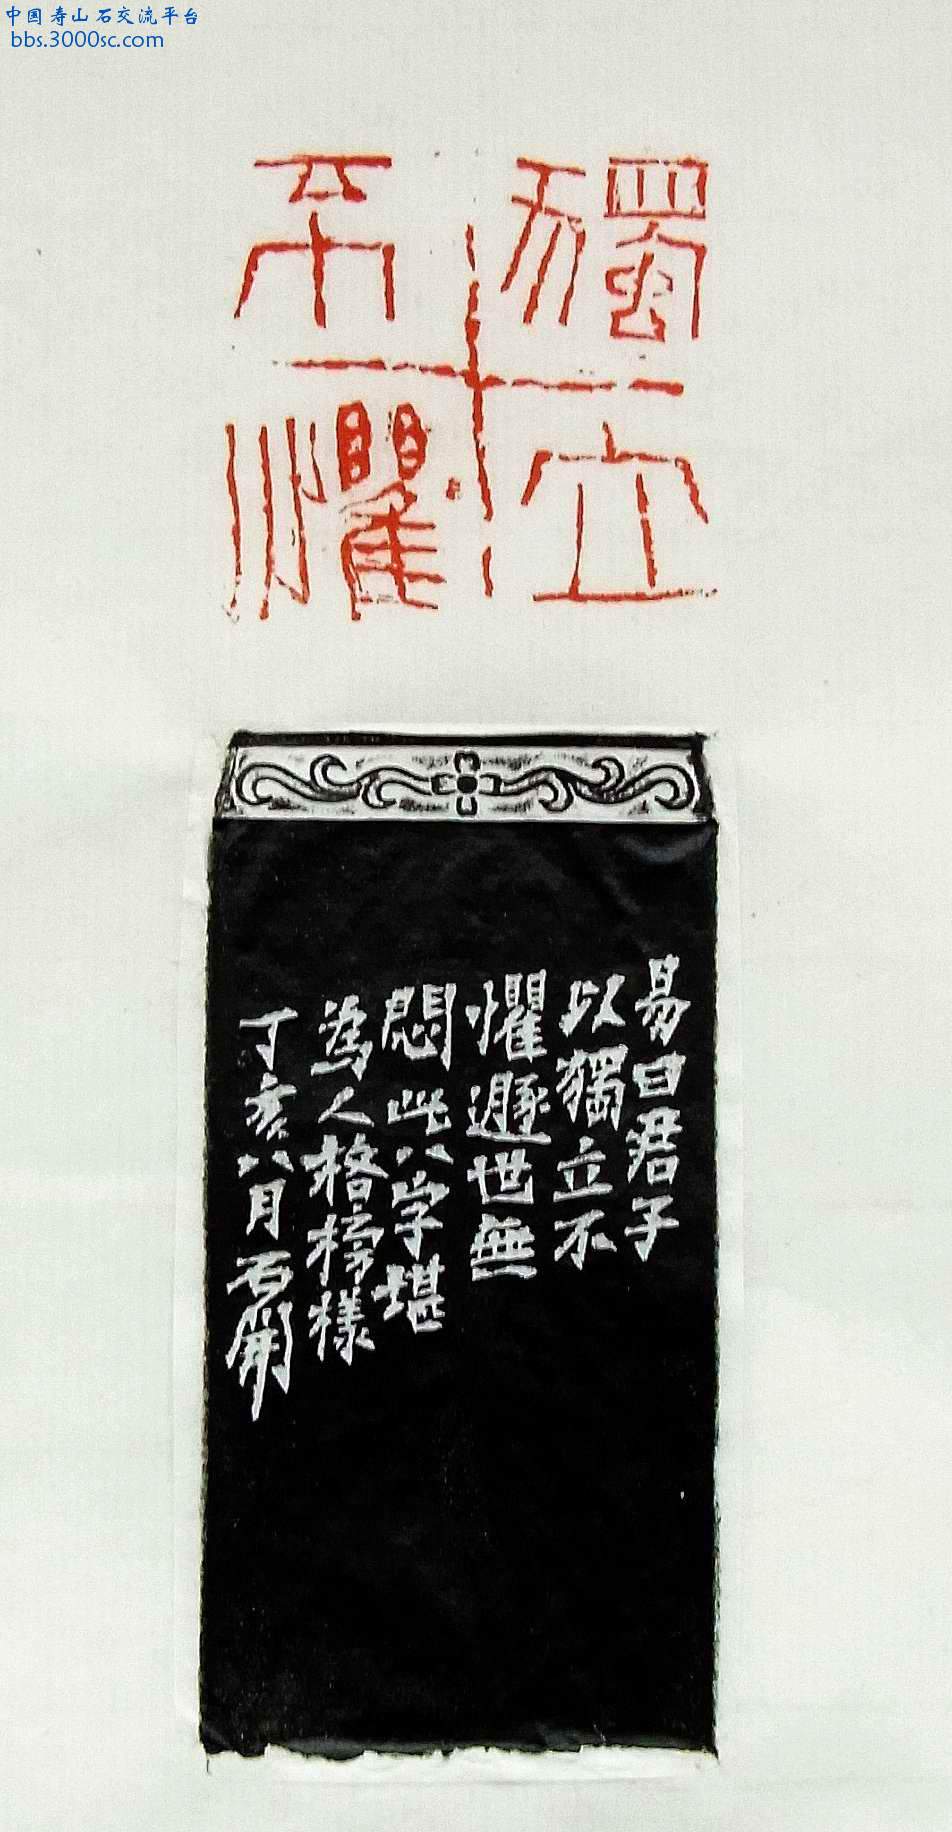 中国寿山石交流平台
bbs.3000sc.com
獨立
不懼
易曰君子
以獨立不
懼遯世無
悶此八字堪
為人格榜樣
丁亥八月石開